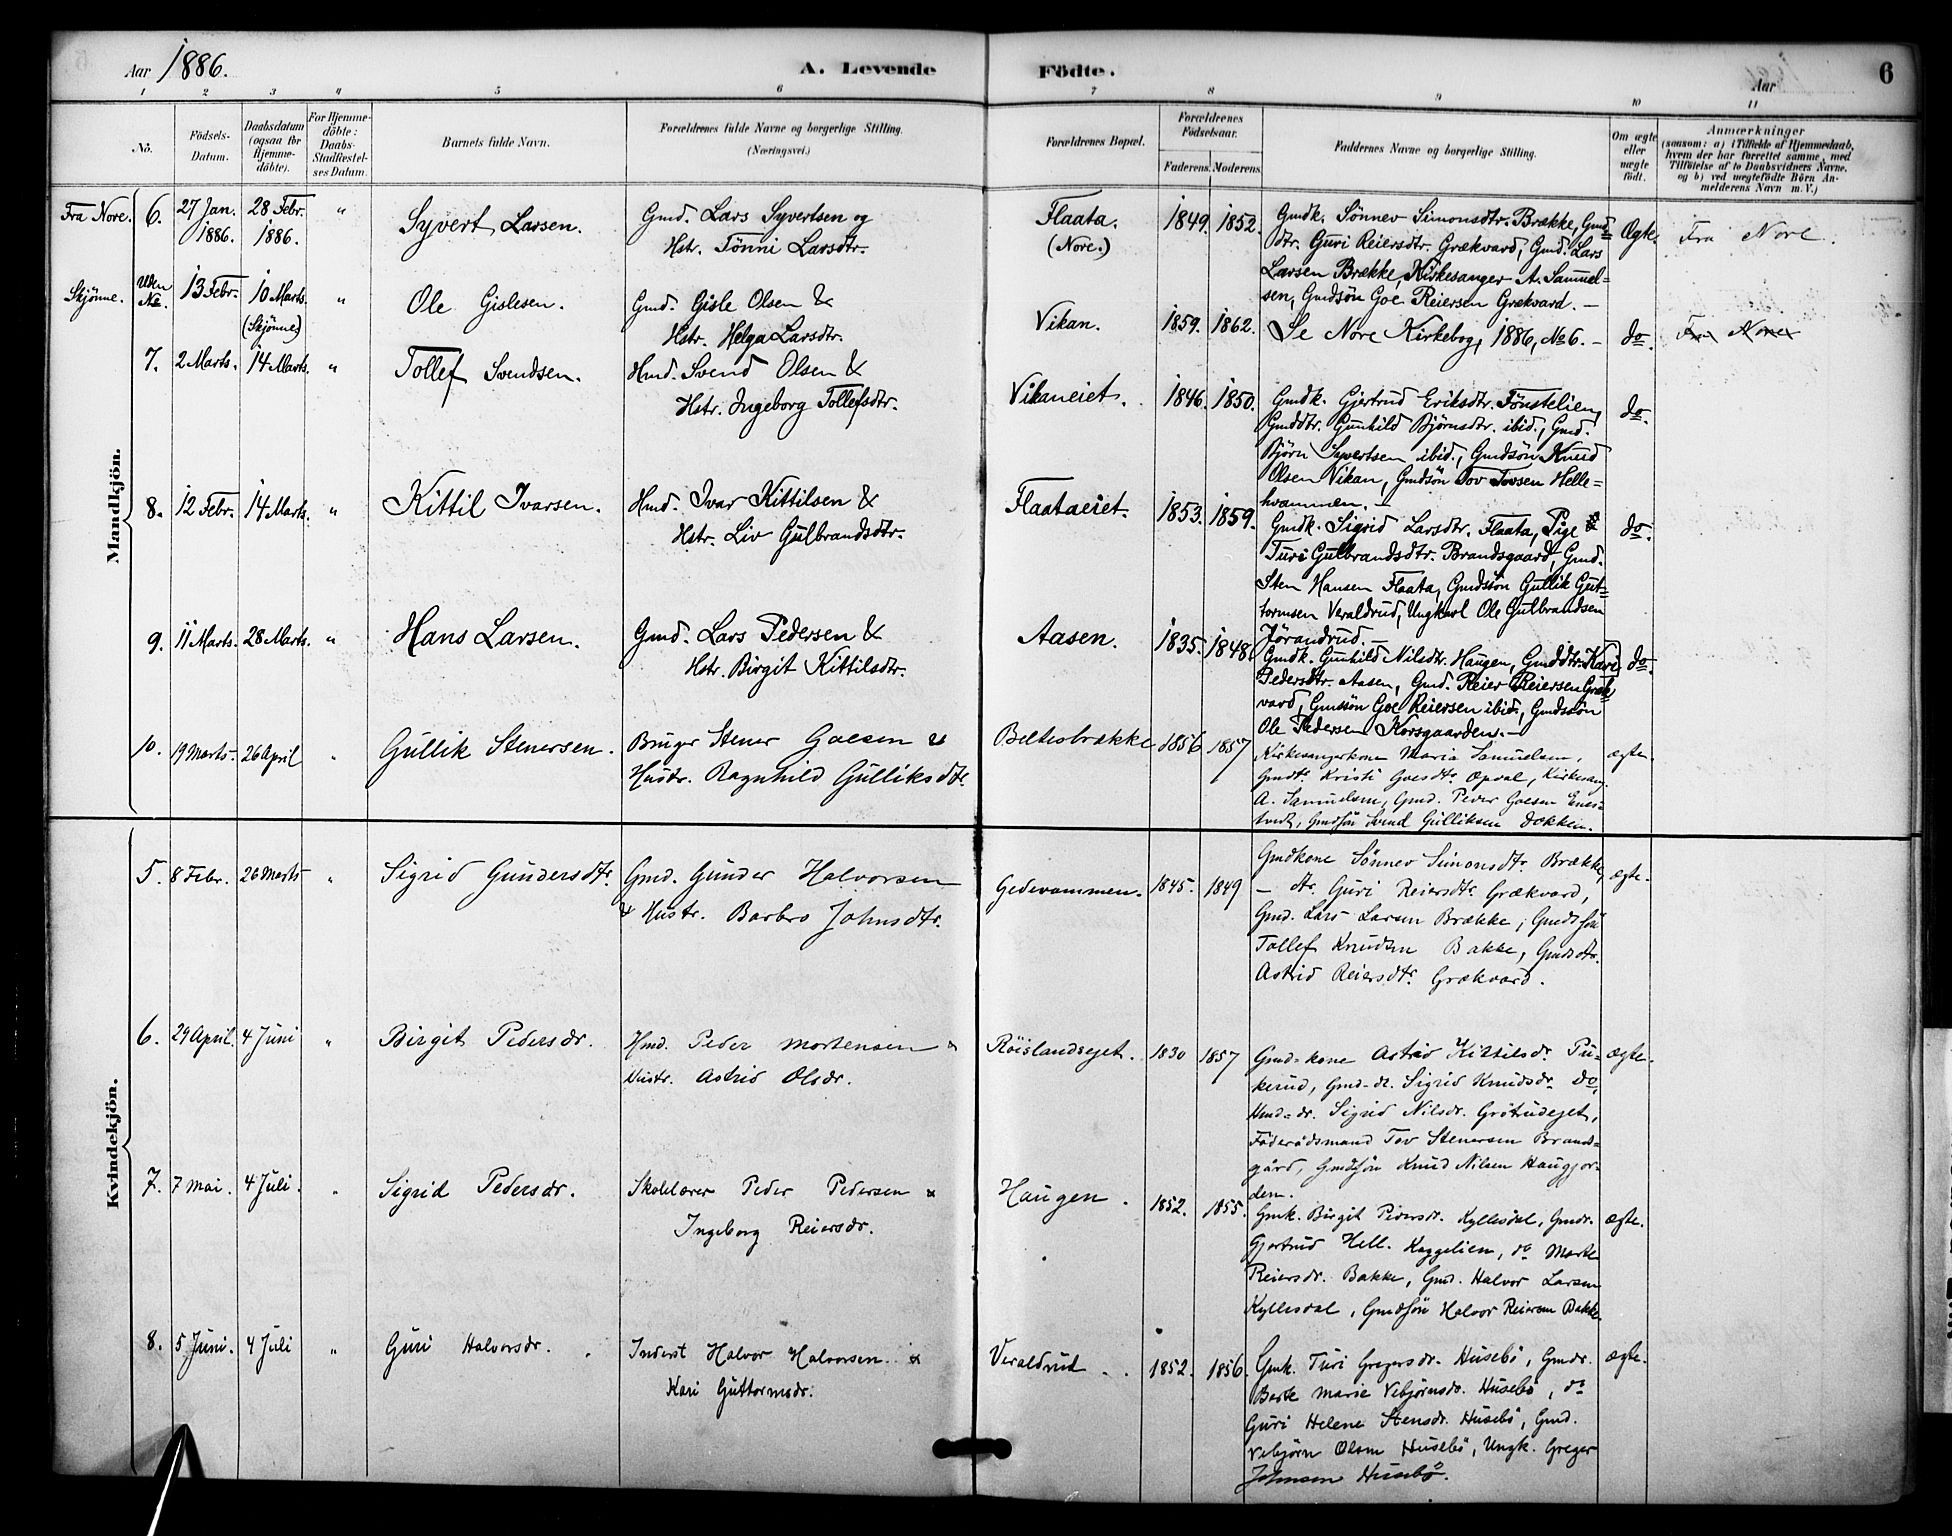 Aar 1886.
A. Levende Födte.
Aar
6
1 2 3 4 5 6 7 8 9 10 11
No.
Födsels-Datum.
Daabsdatum (ogsaa for Hjemme-döbte).
For Hjemme-döbte: Daabs-Stadfæstel-ses Datum.
Barnets fulde Navn.
Forældrenes fulde Navne og borgerlige Stilling.
(Næringsvei.)
Forældrenes Bopæl.
Forældrenes Födselsaar.
Faderens. Moderens.
Faddernes Navne og borgerlige Stilling.
Om ægte eller uægte födt.
Anmærkninger
(saasom: a) i Tilfælde af Hjemmedaab,
hvem der har forrettet samme, med
Tilföielse af to Daabsvidners Navne.
og b) ved uægtefödte Börn An-
melderens Navn m. V.)
Mandkjön.
Fra Nore. 6. 27 Jan. 1886. 28 Febr. 1886. " Syvert Larsen.
Gmd. Lars Syvertsen og
Hstr. Tönni Larsdtr.
Flaata. (Nore.) 1849. 1852.
Gmdk. Sönnev Simonsdtr. Brække, Gmd=
dtr. Guri Reiersdtr. Grækvard, Gmd. Lars
Larsen Brække, Kirkesanger A. Samuel-
sen, Gmdsön Goe Reiersen Grækvard. –
Ægte. Fra Nore.
Skjönne. Uden No. 13 Febr. 10 Marts. (Skjönne) " Ole Gislesen.
Gmd. Gisle Olsen &
Hstr. Helga Larsdtr.
Vikan. 1859. 1862.
Se Nore Kirkebog, 1886, No 6. –
do. Fra Nore
7. 2 Marts. 14 Marts. " Tollef Svendsen.
Hmd. Svend Olsen &
Hstr. Ingeborg Tollefsdtr.
Vikaneiet. 1846. 1850.
Gmdk. Gjertrud Eriksdtr. Fönstelien,
Gmddtr. Gunhild Björnsdtr. ibid., Gmd.
Björn Syvertsen ibid., Gmdsön Knud
Olsen Vikan, Gmdsön Tov Tovsen Helle=
hvammen. –
do.
8. 12 Febr. 14 Marts. " Kittil Ivarsen.
Hmd. Ivar Kittilsen &
Hstr. Liv Gulbrandsdtr.
Flaataeiet. 1853. 1859.
Gmdk. Sigrid Larsdtr. Flaata, Pige
Turi Gulbrandsdtr. Brandsgaard, Gmd.
Sten Hansen Flaata, Gmdsön Gullik Gut=
tormsen Veraldrud, Ungkarl Ole Gulbrandsen
Jörandrud. –
do.
9. 11 Marts. 28 Marts. " Hans Larsen.
Gmd. Lars Pedersen &
Hstr. Birgit Kittilsdtr.
Aasen. 1835. 1848.
Gmdk. Gunhild Nilsdtr. Haugen, Gmddtr. Kari
Pedersdtr. Aasen, Gmd. Reier Reiersen Græk
vard, Gmdsön Goe Reiersen ibid., Gmdssön
Ole Pedersen Korsgaarden. –
do.
10. 19 Marts. 26 April " Gullik Stenersen.
Bruger Stener Goesen &
Hustr. Ragnhild Gulliksdtr.
Beltesbrække 1856 1857
Kirkesangerkone Maria Samuelsen,
Gmdtr. Kristi Goesdtr. Opdal, Kirkesang.
A. Samuelsen, Gmd. Peder Goesen
Gmdsön Svend Gulliksen Dokken.
ægte.
Kvindekjön.
5. 8 Febr. 26 Marts " Sigrid Gundersdtr.
Gmd. Gunder Halvorsen
& Hustr. Barbro Johnsdtr.
Gedevammen. 1845. 1849
Gmdkone Sönnev Simonsdtr. Brække,
– dtr. Guri Reiersdtr. Grækvard,
Gmd. Lars Larsen Brække, Gmdssön
Tollef Knudsen Bakke, Gmdsdtr.
Astrid Reiersdtr. Grækvard.
ægte.
6. 29 April. 4 Juni " Birgit Pedersdr.
Hmd. Peder Mortensen &
Hustr. Astrid Olsdr.
Röislandsejet. 1830 1857
Gmd=kone Astrid Kittilsdr. Pu=
kerud, Gmd-dr. Sigrid Knudsdr. do,
Hmd=dr. Sigrid Nilsdr. Grötudejet,
Föderådsmand Tov Stenersen Brands=
gård, Gmdsön Knud Nilsen Haugjor-
den.
ægte.
7. 7 Mai. 4 Juli. " Sigrid Pedersdr.
Skolelærer Peder Pedersen &
Ingeborg Reiersdr.
Haugen. 1852. 1855.
Gmk. Birgit Pedersdr. Kyllesdal, Gmdr.
Gjertrud Hell. Kaggelien, do Marte
Reiersdr. Bakke, Gmd. Halvor Larsen
Kyllesdal, Gmdsön Halvor Reiersen Bakke.
ægte.
8. 5 Juni. 4 Juli " Guri Halvorsdr.
Inderst Halvor Halvorsen &
Kari Guttormsdr.
Veraldrud. 1852. 1856.
Gmk. Turi Gregersdr. Husebö, Gmdr.
Berte Marie Vebjörnsdr. Husebö, do
Guri Helene Stensdr. Husebö, Gmd.
Vebjörn Olsen Husebö, Ungk. Greger
Johnsen Husebö.
ægte.